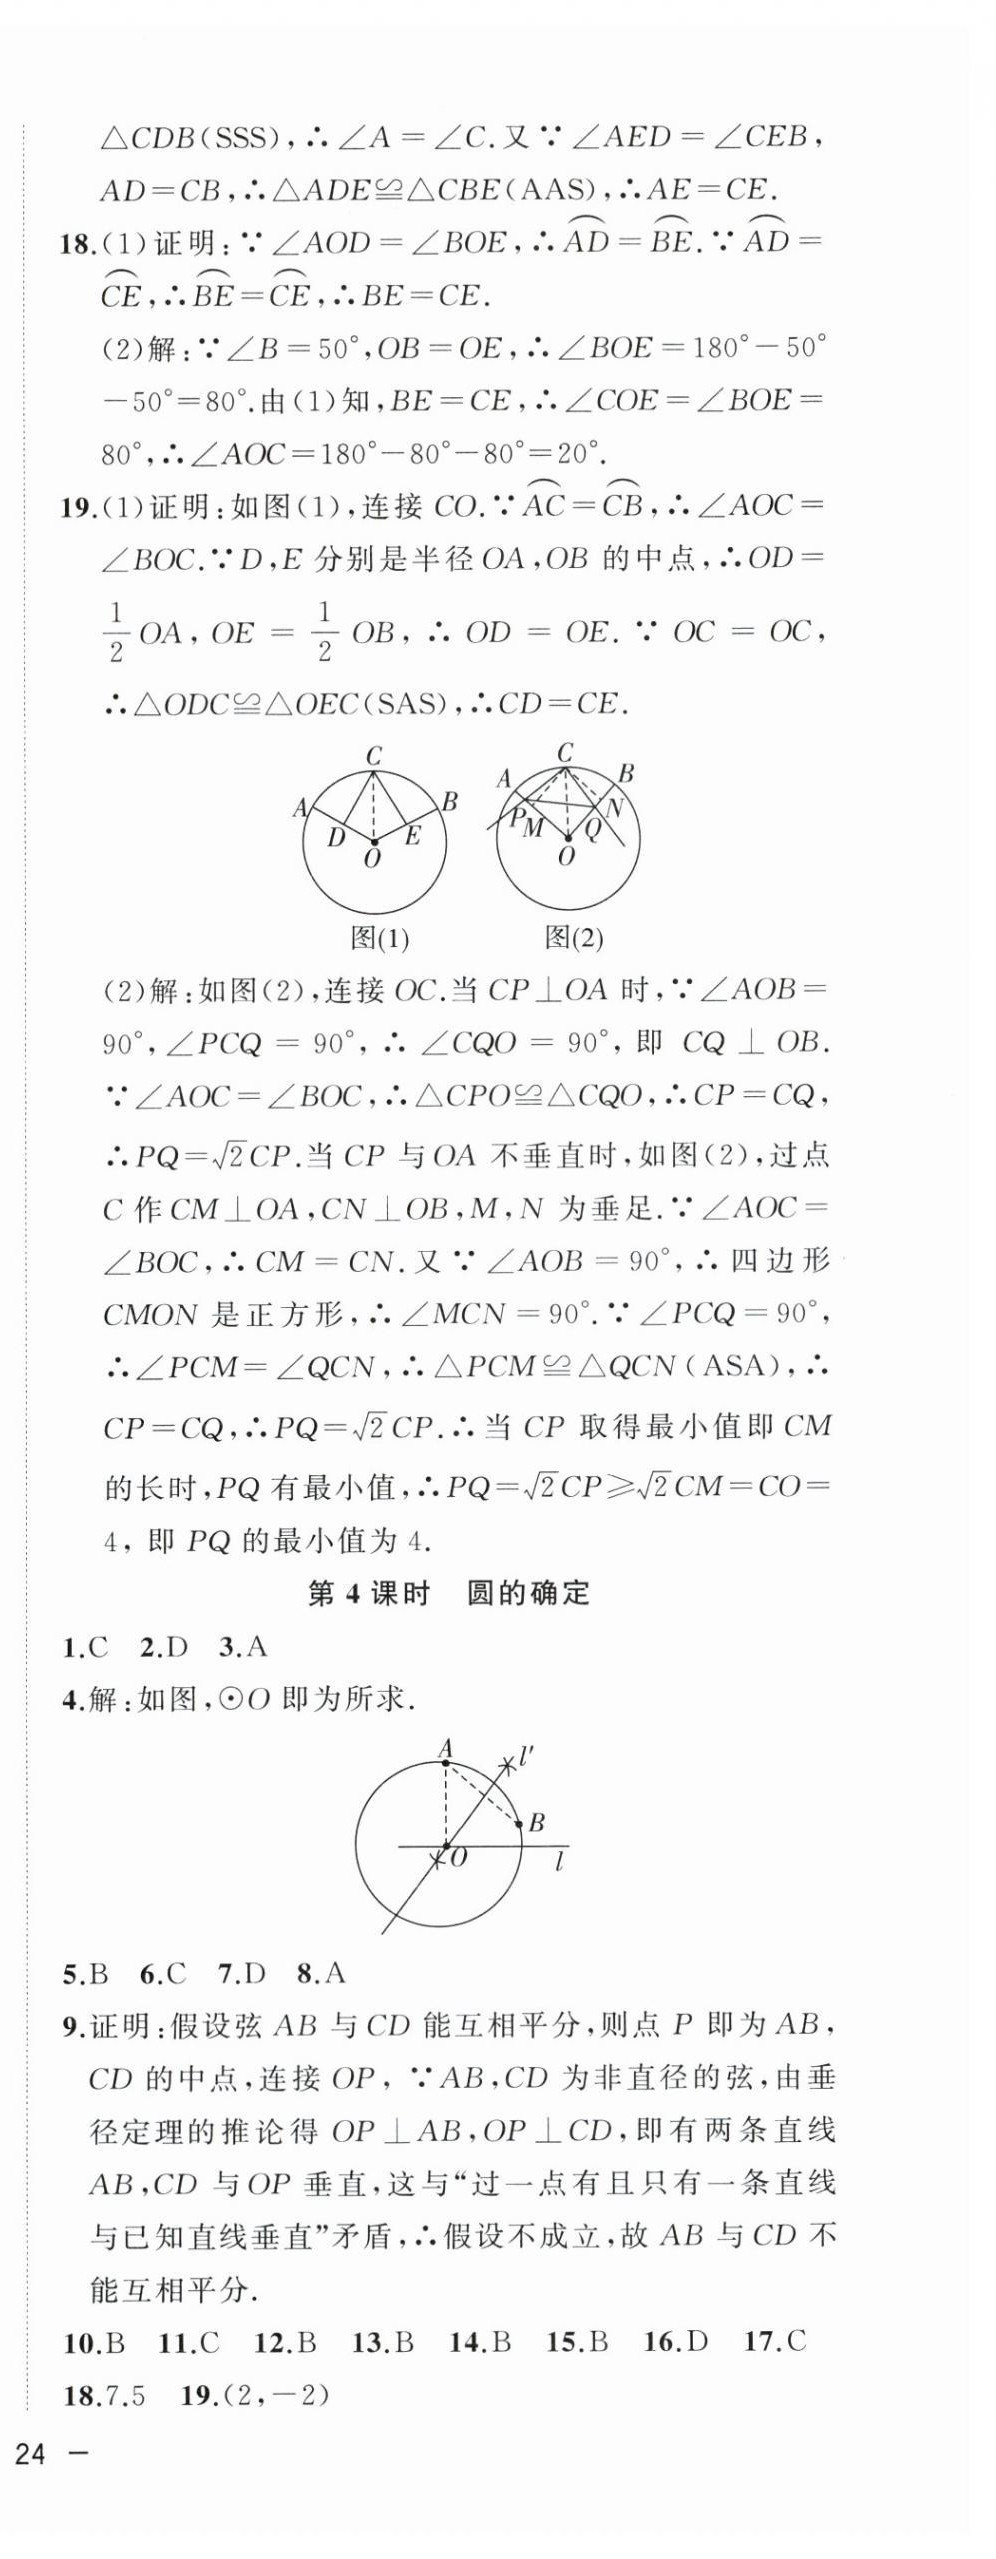 △CDB(SSS),∴∠A=∠C.又∵∠AED=∠CEB,
AD=CB,∴△ADE≌△CBE(AAS),∴AE=CE.
18.(1)证明:∵∠AOD=∠BOE,∴A͡D=B͡E.∵A͡D=
C͡E,∴B͡E=C͡E,∴BE=CE.
(2)解:∵∠B=50°,OB=OE,∴∠BOE=180°-50°
-50°=80°.由(1)知,BE=CE,∴∠COE=∠BOE=
80°,∴∠AOC=180°-80°-80°=20°.
19.(1)证明:如图(1),连接 CO.∵A͡C=C͡B,∴∠AOC=
∠BOC.∵D,E 分别是半径 OA,OB 的中点,∴OD=
1/2 OA, OE = 1/2 OB, ∴ OD = OE. ∵ OC = OC,
∴△ODC≌△OEC(SAS),∴CD=CE.
C
A
B
D
E
O
图(1)
C
A
B
P
M
N
Q
O
图(2)
(2)解:如图(2),连接 OC.当 CP⊥OA 时,∵∠AOB=
90°,∠PCQ = 90°, ∴ ∠CQO = 90°, 即 CQ ⊥ OB.
∵∠AOC=∠BOC,∴△CPO≌△CQO,∴CP=CQ,
∴PQ=√2CP.当 CP 与 OA 不垂直时,如图(2),过点
C 作 CM⊥OA,CN⊥OB,M,N 为垂足.∵∠AOC=
∠BOC,∴CM=CN.又∵∠AOB=90°,∴四边形
CMON 是正方形,∴∠MCN=90°.∵∠PCQ=90°,
∴∠PCM=∠QCN,∴△PCM≌△QCN(ASA),∴
CP=CQ,∴PQ=√2CP.∴当 CP 取得最小值即 CM
的长时,PQ 有最小值,∴PQ=√2CP≥√2CM=CO=
4, 即 PQ 的最小值为 4.
第 4 课时 圆的确定
1.C 2.D 3.A
4.解:如图,⊙O 即为所求.
A
l′
B
O
l
5.B 6.C 7.D 8.A
9.证明:假设弦 AB 与 CD 能互相平分,则点 P 即为 AB,
CD 的中点,连接 OP, ∵AB,CD 为非直径的弦,由垂
径定理的推论得 OP⊥AB,OP⊥CD,即有两条直线
AB,CD 与 OP 垂直,这与“过一点有且只有一条直线
与已知直线垂直”矛盾,∴假设不成立,故 AB 与 CD 不
能互相平分.
10.B 11.C 12.B 13.B 14.B 15.B 16.D 17.C
18.7.5 19.(2,-2)
24 —